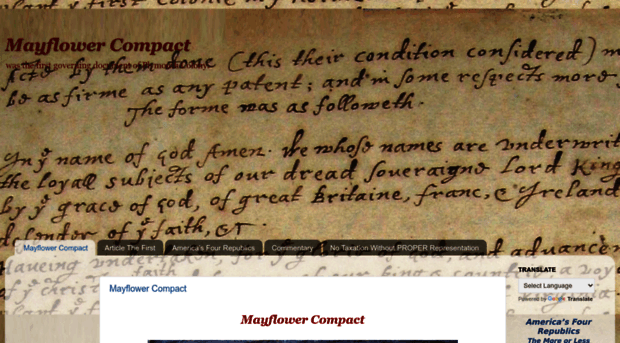 Mayflower Compact
was the first governing document of Plymouth Colony
Acte by them done (this their condition considered) might
be as firme as any patent; and in some respects more s
The forme was as followeth.
In yͤ name of god Amen. We whose names are underwrit
the loyall subjects of our dread soveraigne Lord King
by yͤ grace of God, of great Britaine, franc, & Ireland
defender of yͤ faith, &c
Haveing undertaken, for yͤ glorie of god, and advance
of yͤ christ faith and honour of our king & countrie, a voy
Mayflower Compact
Article The First
America's Four Republics
Commentary
No Taxation Without PROPER Representation
Mayflower Compact
Mayflower Compact
TRANSLATE
Select Language
Powered by Google Translate
America's Four
Republics
The More or Less